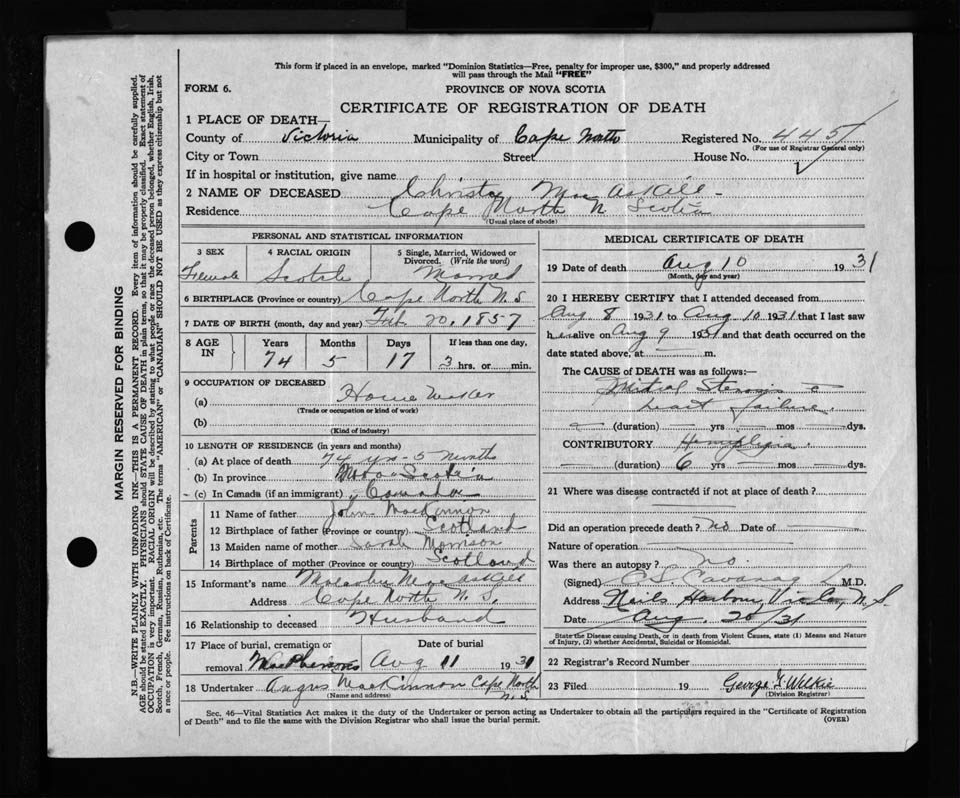 This form if placed in an envelope, marked "Dominion Statistics—Free, penalty for improper use, $300," and properly addressed
will pass through the Mail "FREE"
FORM 6.
PROVINCE OF NOVA SCOTIA
CERTIFICATE OF REGISTRATION OF DEATH
1 PLACE OF DEATH—
County of Victoria Municipality of Cape North Registered No. 445
(For use of Registrar General only)
City or Town Street House No.
If in hospital or institution, give name
2 NAME OF DECEASED Christy MacAskill
Residence Cape North N Scotia
(Usual place of abode)
PERSONAL AND STATISTICAL INFORMATION
3 SEX 4 RACIAL ORIGIN 5 Single, Married, Widowed or
Divorced. (Write the word)
Female Scotch Married
6 BIRTHPLACE (Province or country) Cape North N.S
7 DATE OF BIRTH (month, day and year) Feb 20, 1857
8 AGE IN Years Months Days If less than one day,
74 5 17 3 hrs. or min.
9 OCCUPATION OF DECEASED
(a) House
(Trade or occupation or kind of work)
(b)
(Kind of industry)
10 LENGTH OF RESIDENCE (in years and months)
(a) At place of death 74 yrs - 5 months
(b) In province Nova Scotia
(c) In Canada (if an immigrant) Canada
Parents
11 Name of father John MacKinnon
12 Birthplace of father (Province or country) Scotland
13 Maiden name of mother Sarah Morrison
14 Birthplace of mother (Province or country) Scotland
15 Informant's name Malcolm MacAskill
Address Cape North N.S.
16 Relationship to deceased Husband
17 Place of burial, cremation or Date of burial
removal MacPhersons Aug 11 1931
18 Undertaker Angus MacKinnon Cape North
(Name and address) N.S
MEDICAL CERTIFICATE OF DEATH
19 Date of death Aug 10 1931
(Month, day and year)
20 I HEREBY CERTIFY that I attended deceased from
Aug. 8 1931 to Aug. 10 1931 that I last saw
h alive on Aug 9 1931 and that death occurred on the
date stated above, at m.
The CAUSE of DEATH was as follows:—
Mitral Stenosis c
heart failure.
(duration) yrs mos dys.
CONTRIBUTORY Hemiplegia.
(duration) 6 yrs mos dys.
21 Where was disease contracted if not at place of death?
Did an operation precede death? no Date of
Nature of operation
Was there an autopsy? no.
(Signed) M.D.
Address Neils Harbour, Vic Co, N.S.
Date Aug. 20/31
State the Disease causing Death, or in death from Violent Causes, state (1) Means and Nature
of Injury, (2) whether Accidental, Suicidal or Homicidal.
22 Registrar's Record Number
23 Filed 19 George F. Wilkie
(Division Registrar)
Sec. 46—Vital Statistics Act makes it the duty of the Undertaker or person acting as Undertaker to obtain all the particulars required in the "Certificate of Registration
of Death" and to file the same with the Division Registrar who shall issue the burial permit. (OVER)
MARGIN RESERVED FOR BINDING
N.B.—WRITE PLAINLY WITH UNFADING INK—THIS IS A PERMANENT RECORD. Every item of information should be carefully supplied.
AGE should be stated EXACTLY. PHYSICIANS should STATE CAUSE OF DEATH in plain terms, so that it may be properly classified. Exact statement of
OCCUPATION is very important. RACIAL ORIGIN will be described by stating to what people or race the deceased person belonged, whether English, Irish,
Scotch, French, German, Russian, Ruthenian, etc. The terms "AMERICAN" or "CANADIAN" SHOULD NOT BE USED as they express citizenship but not
a race or people. See instructions on back of Certificate.